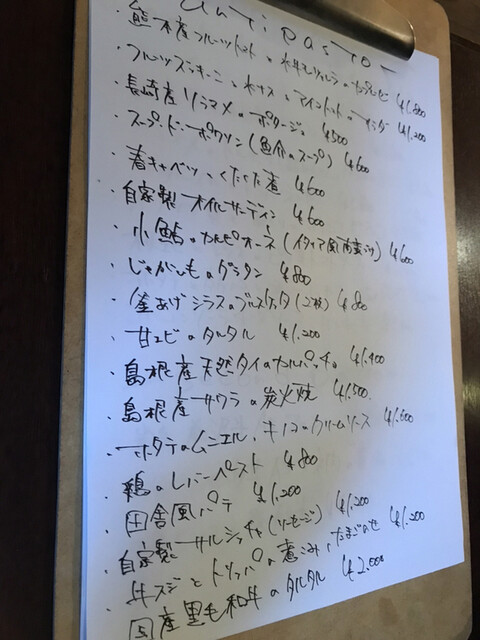 antipasto
・熊本産フルーツトマト 水牛モッツァレラのカプレーゼ ¥1,800
・フルーツズッキーニ、水ナス、アイコトマトのサラダ ¥1,200
・長崎産ソラマメのポタージュ ¥500
・スープ・ド・ポワソン(魚介のスープ) ¥600
・春キャベツのくたくた煮 ¥600
・自家製オイルサーディン ¥600
・小鮎のカルピオーネ(イタリア風南蛮漬け) ¥600
・じゃがいものグラタン ¥800
・釜あげシラスのブルスケッタ(2枚) ¥800
・甘エビのタルタル ¥1,200
・島根産天然タイのカルパッチョ ¥1,400
・島根産サワラの炭火焼 ¥1,500
・ホタテのムニエル、キノコのクリームソース ¥1,600
・鶏のレバーペースト ¥800
・田舎風パテ ¥1,200
・自家製サルシッチャ(ソーセージ) ¥1,200
・牛スジとトリッパの煮こみ、たまごのせ ¥1,200
・国産黒毛和牛のタルタル ¥2,000